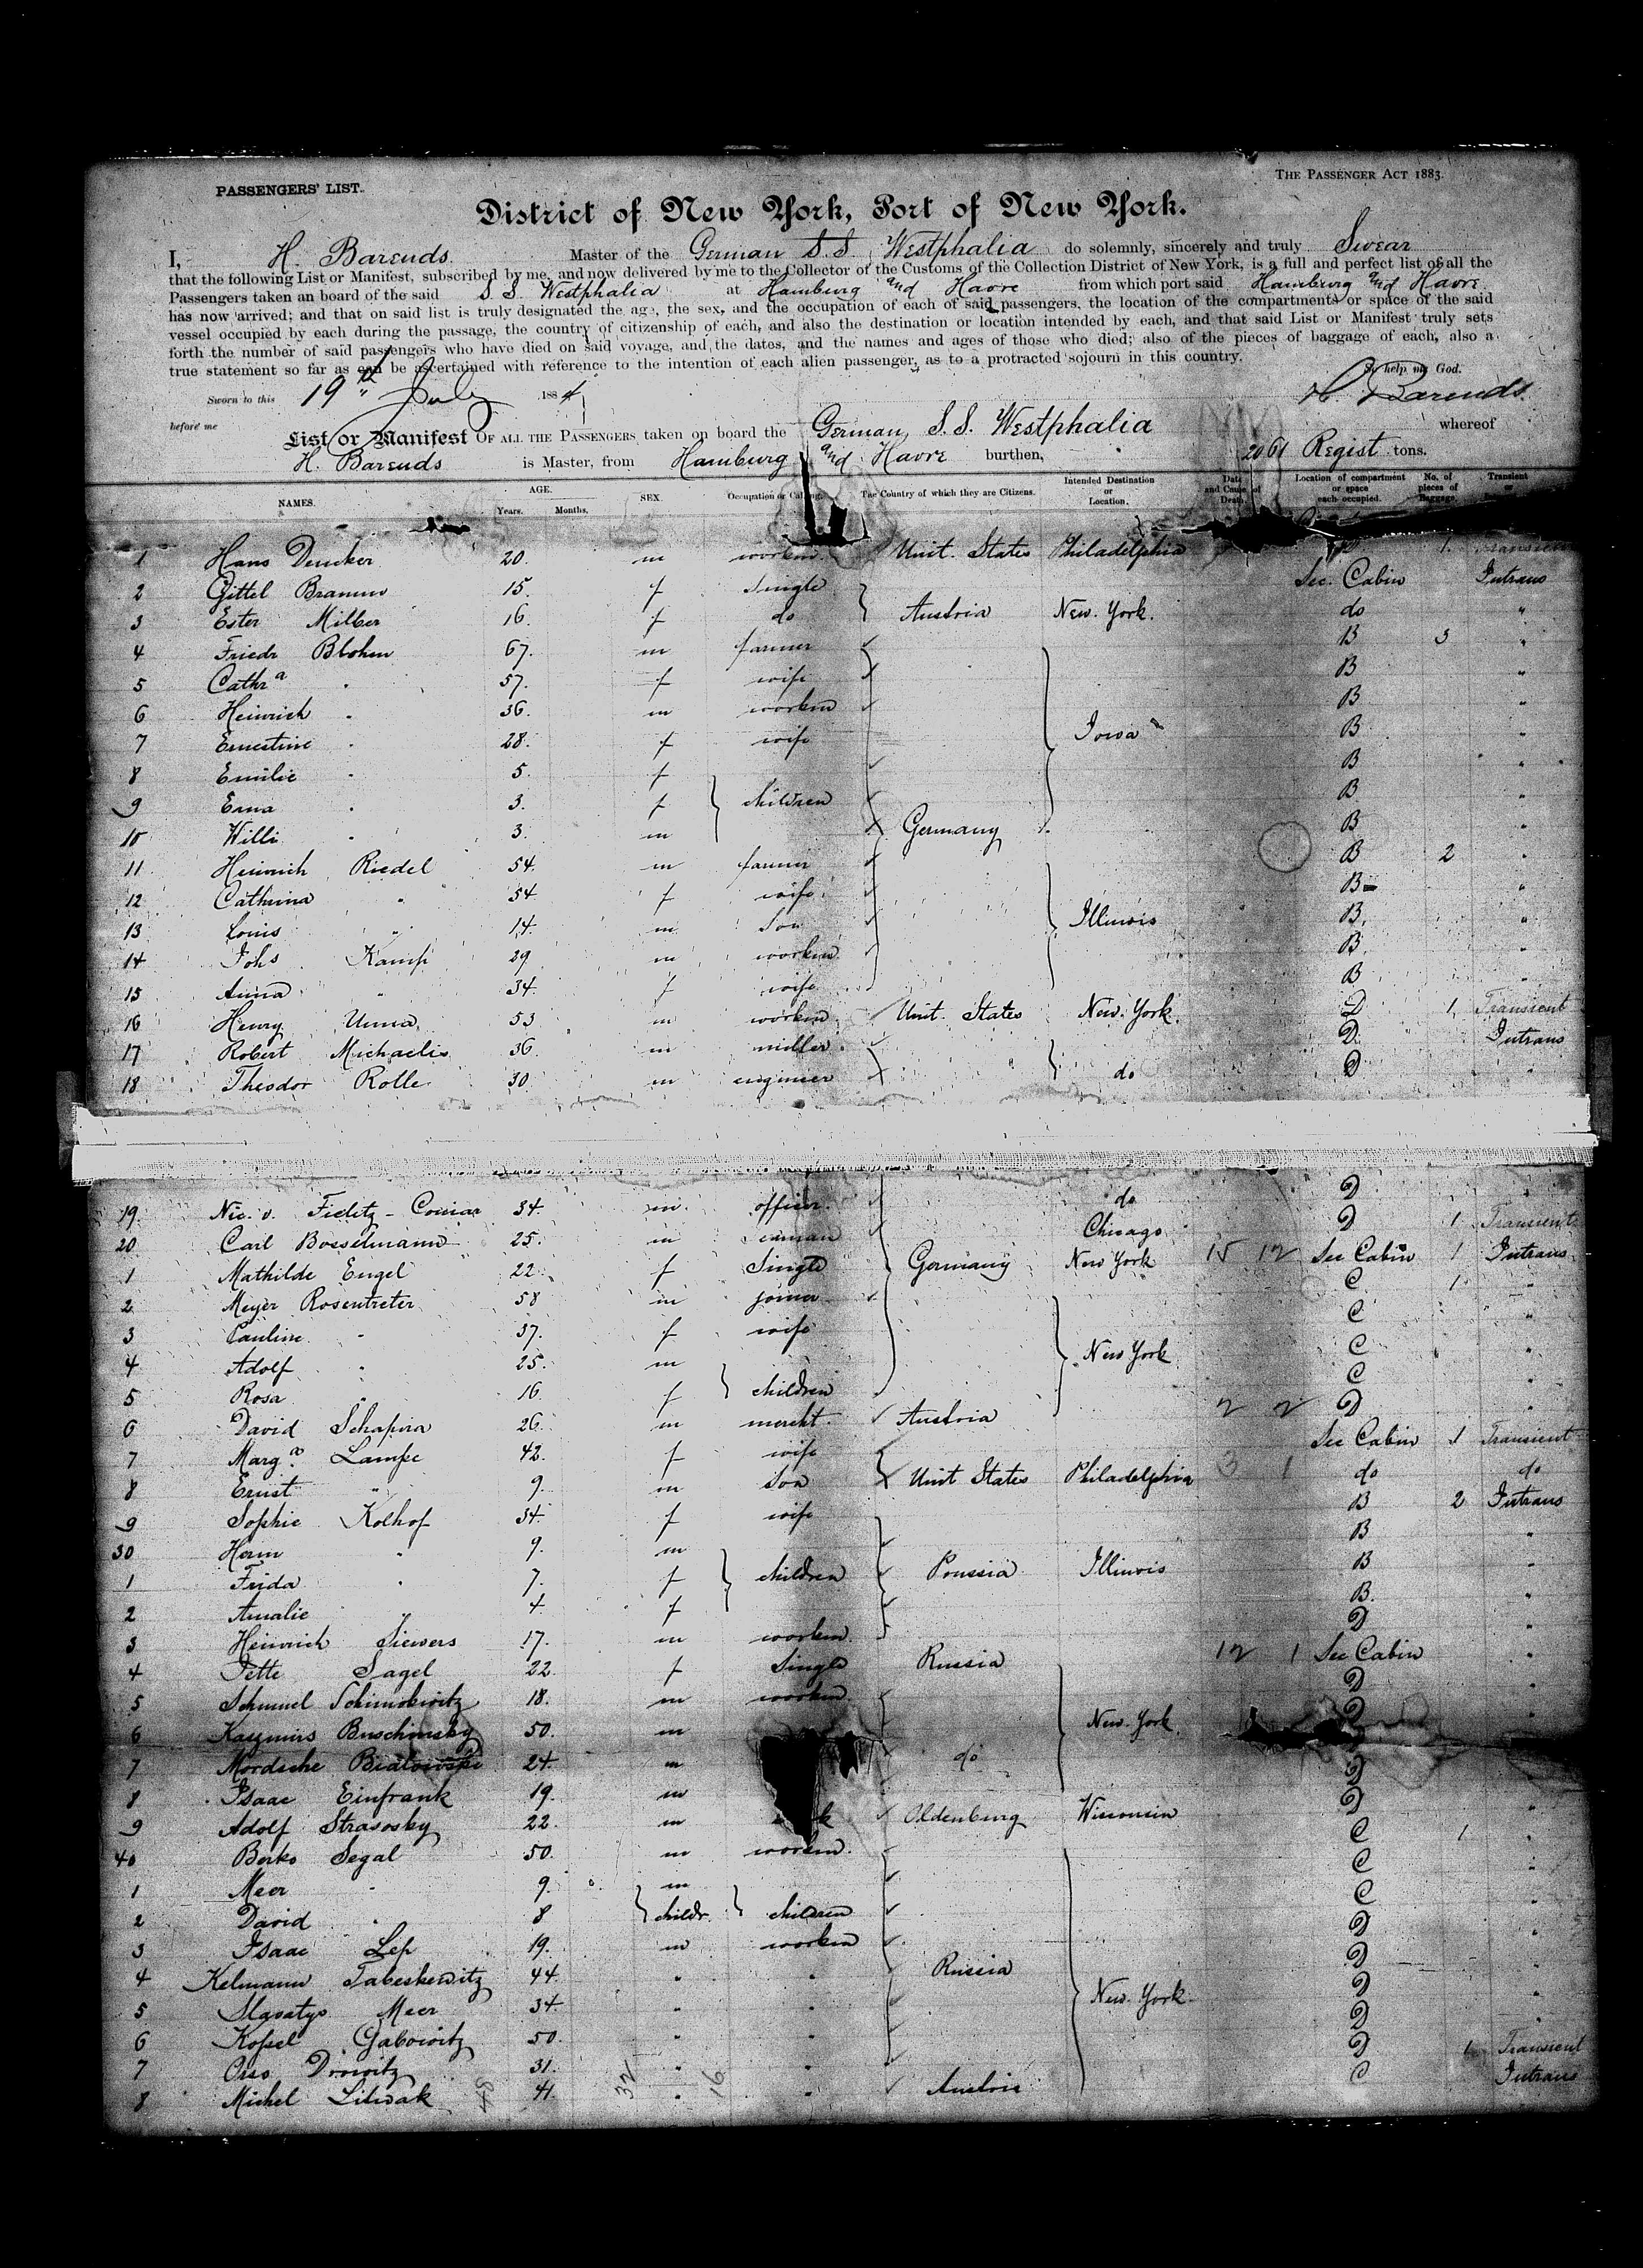 PASSENGERS' LIST.
THE PASSENGER ACT 1883.
District of New York, Port of New York.
I, H. Barends. Master of the German S.S. Westphalia do solemnly, sincerely and truly Swear
that the following List or Manifest, subscribed by me, and now delivered by me to the Collector of the Customs of the Collection District of New York, is a full and perfect list of all the
Passengers taken an board of the said S. S. Westphalia at Hamburg and Havre from which port said Hamburg and Havre
has now arrived; and that on said list is truly designated the age, the sex, and the occupation of each of said passengers, the location of the compartments or space of the said
vessel occupied by each during the passage, the country of citizenship of each, and also the destination or location intended by each, and that said List or Manifest truly sets
forth the number of said passengers who have died on said voyage, and the dates, and the names and ages of those who died; also of the pieces of baggage of each, also a
true statement so far as can be ascertained with reference to the intention of each alien passenger, as to a protracted sojourn in this country.
So help me God.
Sworn to this 19th July 1884 H. Barends.
before me
List or Manifest OF ALL THE PASSENGERS taken on board the German S. S. Westphalia whereof
H. Barends is Master, from Hamburg and Havre burthen, 2061 Regist tons.
NAMES. AGE. Years. Months. SEX. Occupation or Calling. The Country of which they are Citizens. Intended Destination or Location. Date and Cause of Death. Location of compartment or space each occupied. No. of pieces of Baggage. Transient or
1 Hans Dencker 20. m workm. Unit. States Philadelphia D 1. Transient
2 Gittel Bramm 15. f single Sec. Cabin Intrans
3 Ester Milber 16. f do Austria New. York. do "
4 Friedr Blohm 67. m farmer B 3 "
5 Cathra " 57. f wife B "
6 Heinrich " 36. m workm B "
7 Ernestine " 28. f wife Iowa B "
8 Emilie " 5. f B "
9 Erna " 3. f children B "
10 Willi " 3. m Germany B "
11 Heinrich Riedel 54. m farmer B 2 "
12 Cathrina " 54 f wife B "
13 Louis " 14. m Son Illinois B. "
14 Johs Kamp 29 m workm B. "
15 Anna " 34. f wife B "
16 Henry Unna 53 m workm. Unit. States New. York. D 1, Transient
17 Robert Michaelis 36. m miller D. Intrans
18 Theodor Rolle 30 m engineer do D "
19. Nic. v. Fielitz - 34. m. officer. do D "
20 Carl Bosselmann 25. m Chicago D 1 Transient
1 Mathilde Engel 22 f Single Germany New York 15 12 Sec Cabin 1 Intrans
2 Meyer Rosentreter 58 m joiner C 1 "
3 Pauline " 37. f wife C "
4 Adolf " 25. m New York C "
5 Rosa " 16. f children C "
6 David Schapira 26. m mercht. Austria 2 2 D "
7 Marga Lampe 42. f wife Sec Cabin 1 Transient
8 Ernst " 9. m Son Unit States Philadelphia 3 1 do do
9 Sophie Kolhof 34. f wife B 2 Intrans
30 Herm " 9. m B "
1 Frida " 7. f children Prussia Illinois B "
2 Amalie " 4. f B. "
3 Heinrich Siewers 17. m workm. D "
4 Jette Sagel 22. f Single Russia 12 1 Sec Cabin "
5 Schmuel Schimskowitz 18. m workm D "
6 Kasymirs Buschinsky 50. m New. York. D "
7 Mordsche Bialowski 24. m do D "
8 Isaac Einfrank 19. m D
9 Adolf Strasosky 22. m Oldenburg Wisconsin D "
40 Berko Segal 50. m workm. C 1 "
1 Meer " 9. m C "
2 David " 8 childr. children C "
3 Isaac Lep 19. m workm D "
4 Kelmann Tabeskewitz 44. " " Russia D "
5 Slavatys Meer 34. " " New. York. D "
6 Kopel Gabowitz 50. " " D "
7 31. " " D 1 Transient
8 Michel Litwak 41. " " Austria C Intrans
48 32 16